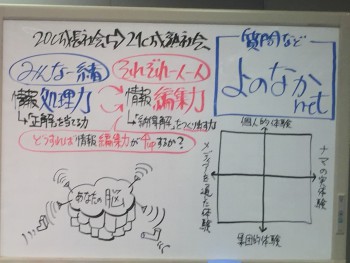 20C成長社会⇒21C成熟社会
みんな一緒 それぞれ一人一人
情報処理力 情報編集力
→「正解」を当てる力 →「納得解」をつくり出す力
どうすれば情報編集力がupするか?
あなたの脳
質問など
よのなか
net
個人的体験
メディアを通した体験
ナマの実体験
集団的体験